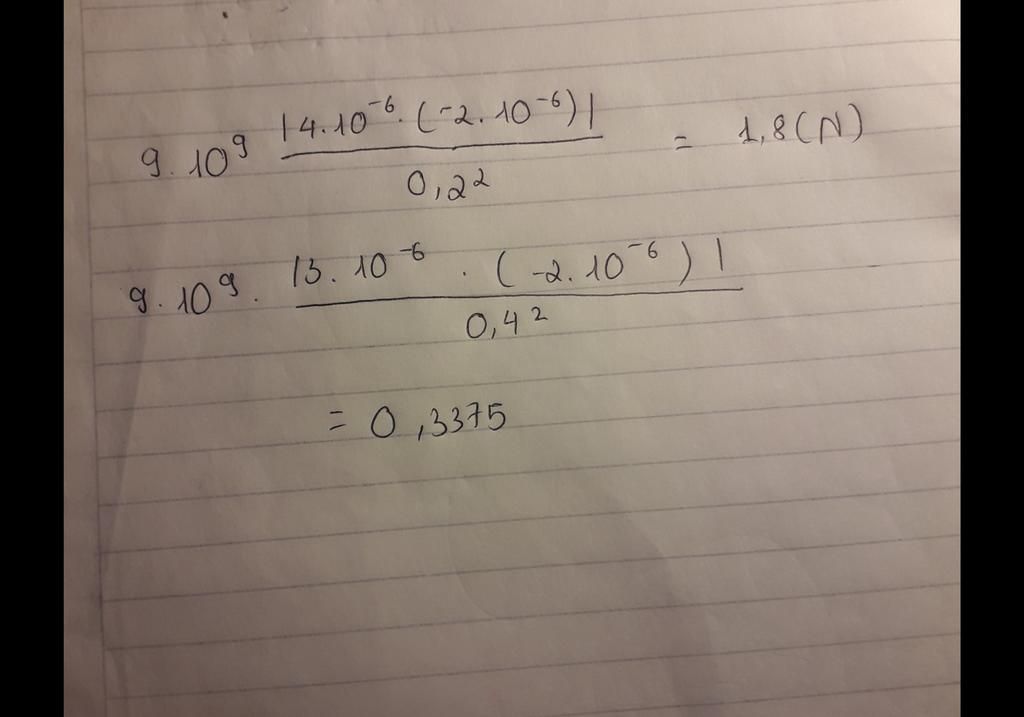 9.10⁹ |4.10⁻⁶.(-2.10⁻⁶)| / 0,2² = 1,8(N)
9.10⁹. |3.10⁻⁶ . (-2.10⁻⁶)| / 0,4²
= 0,3375